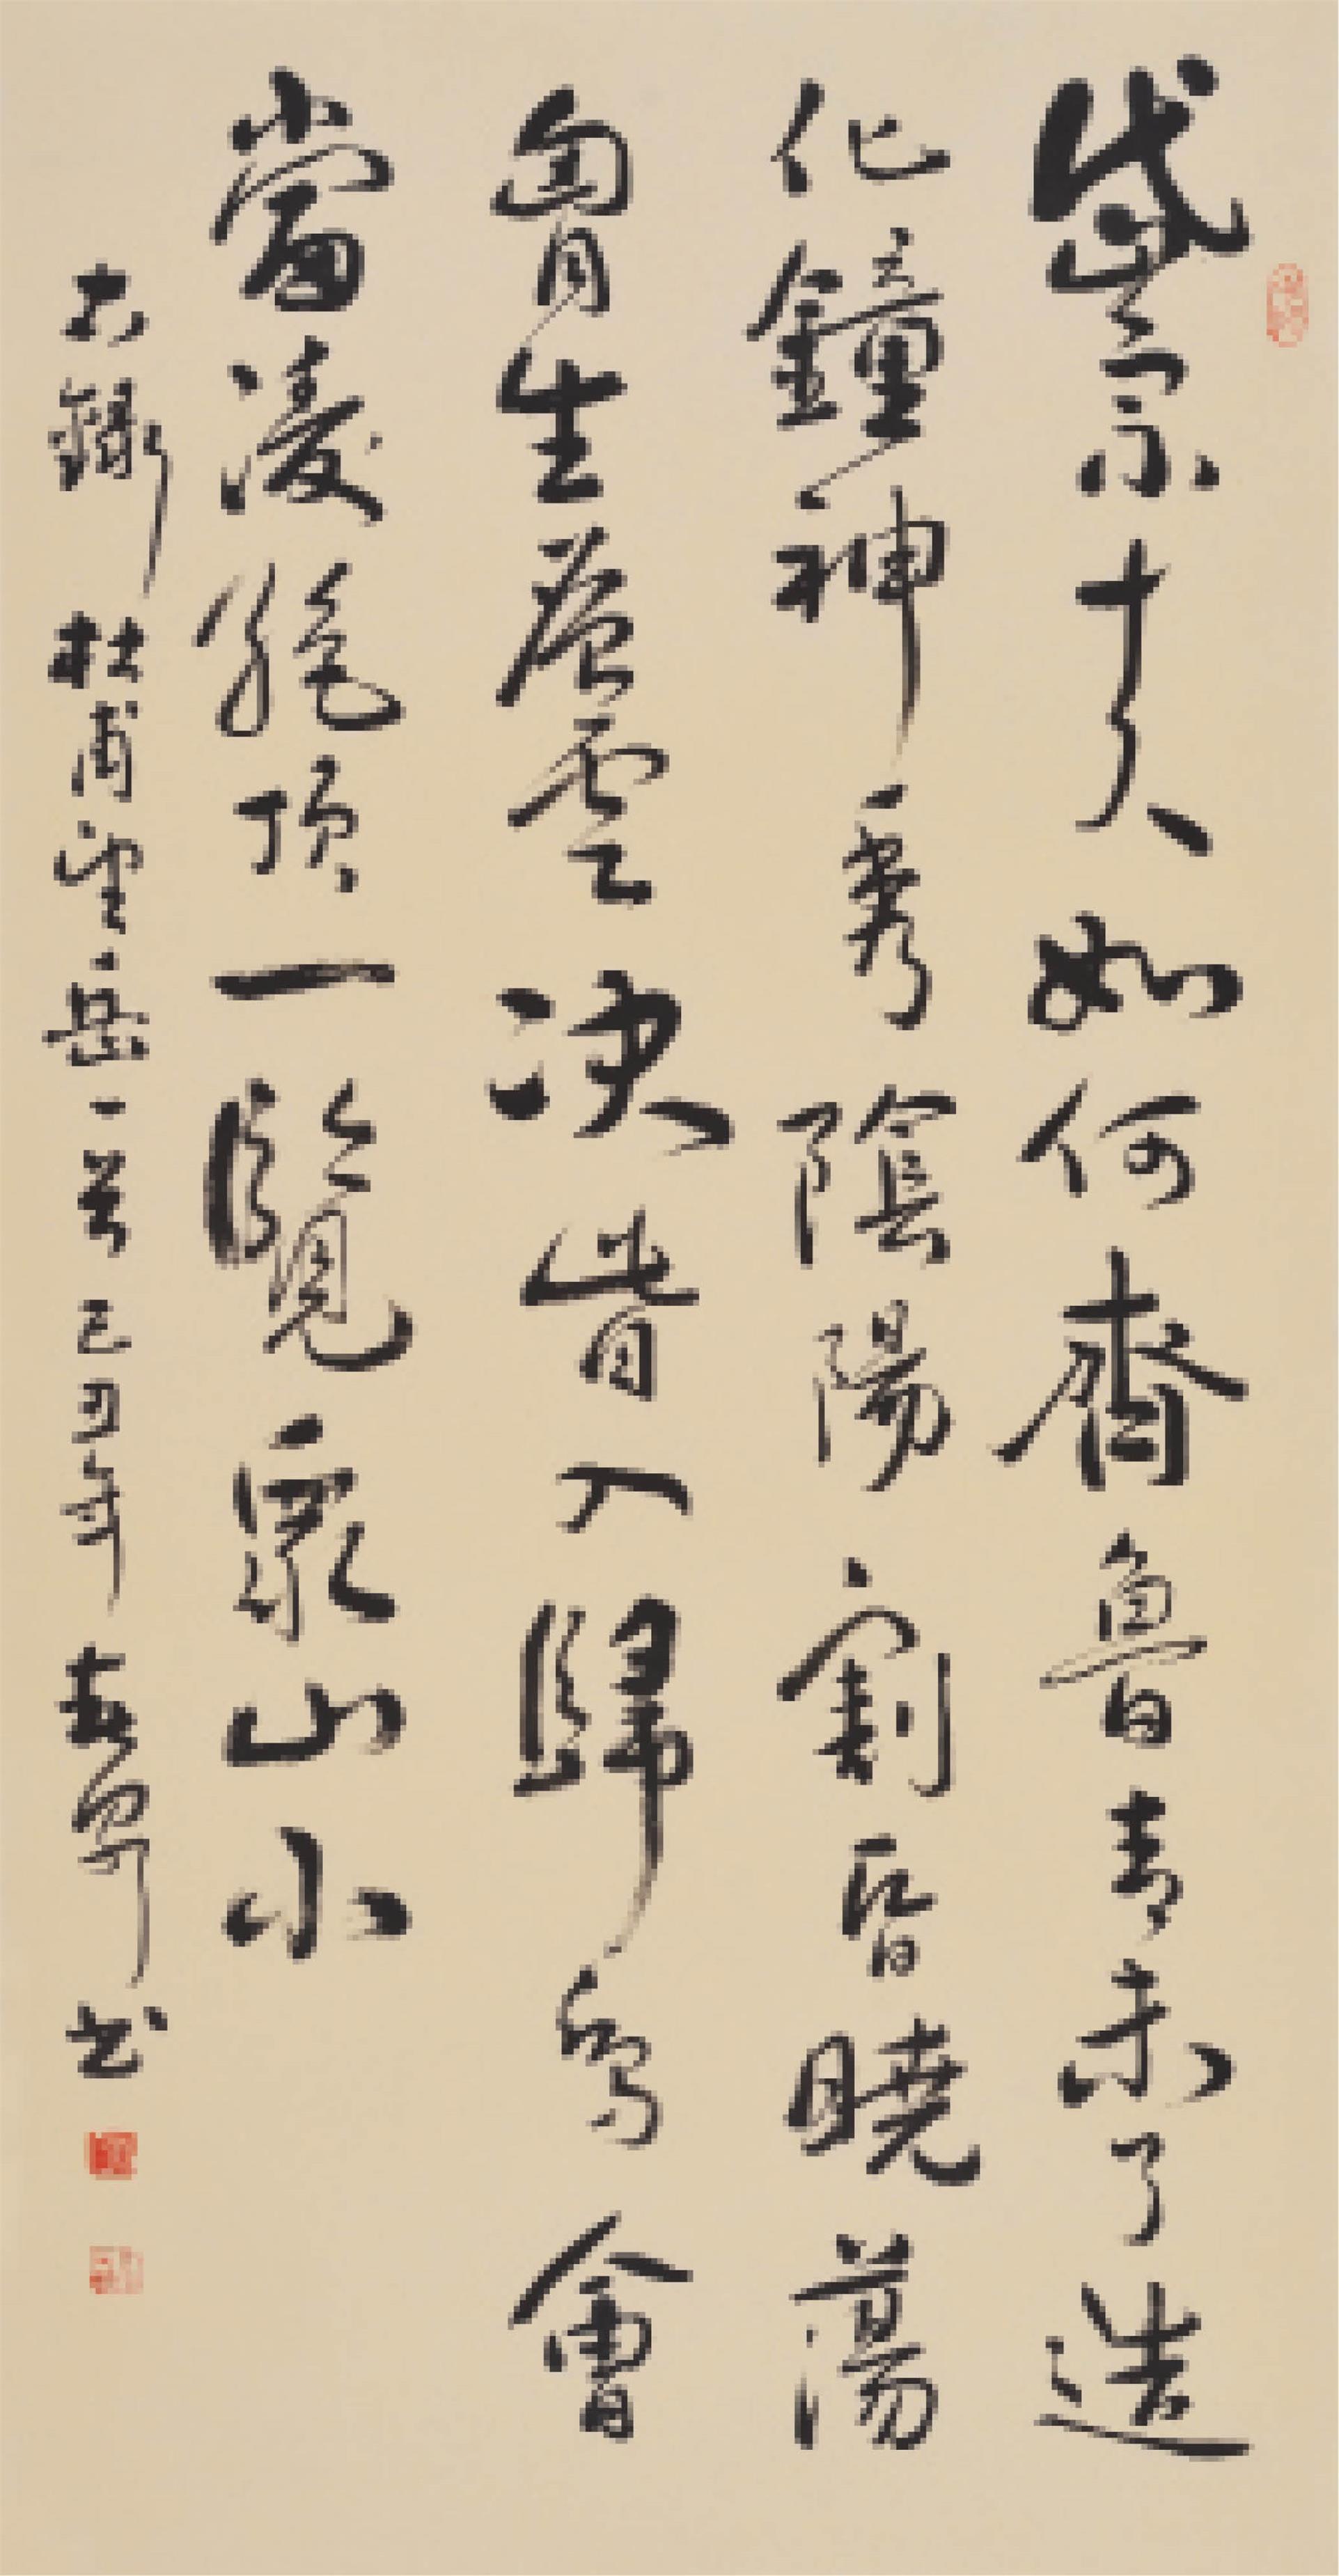 岱宗夫如何齊魯青未了造
化鐘神秀陰陽割昏曉蕩
胷生層雲决眥入歸鳥會
當凌絕頂一覽衆山小
右錄杜甫望岳一首己丑年书